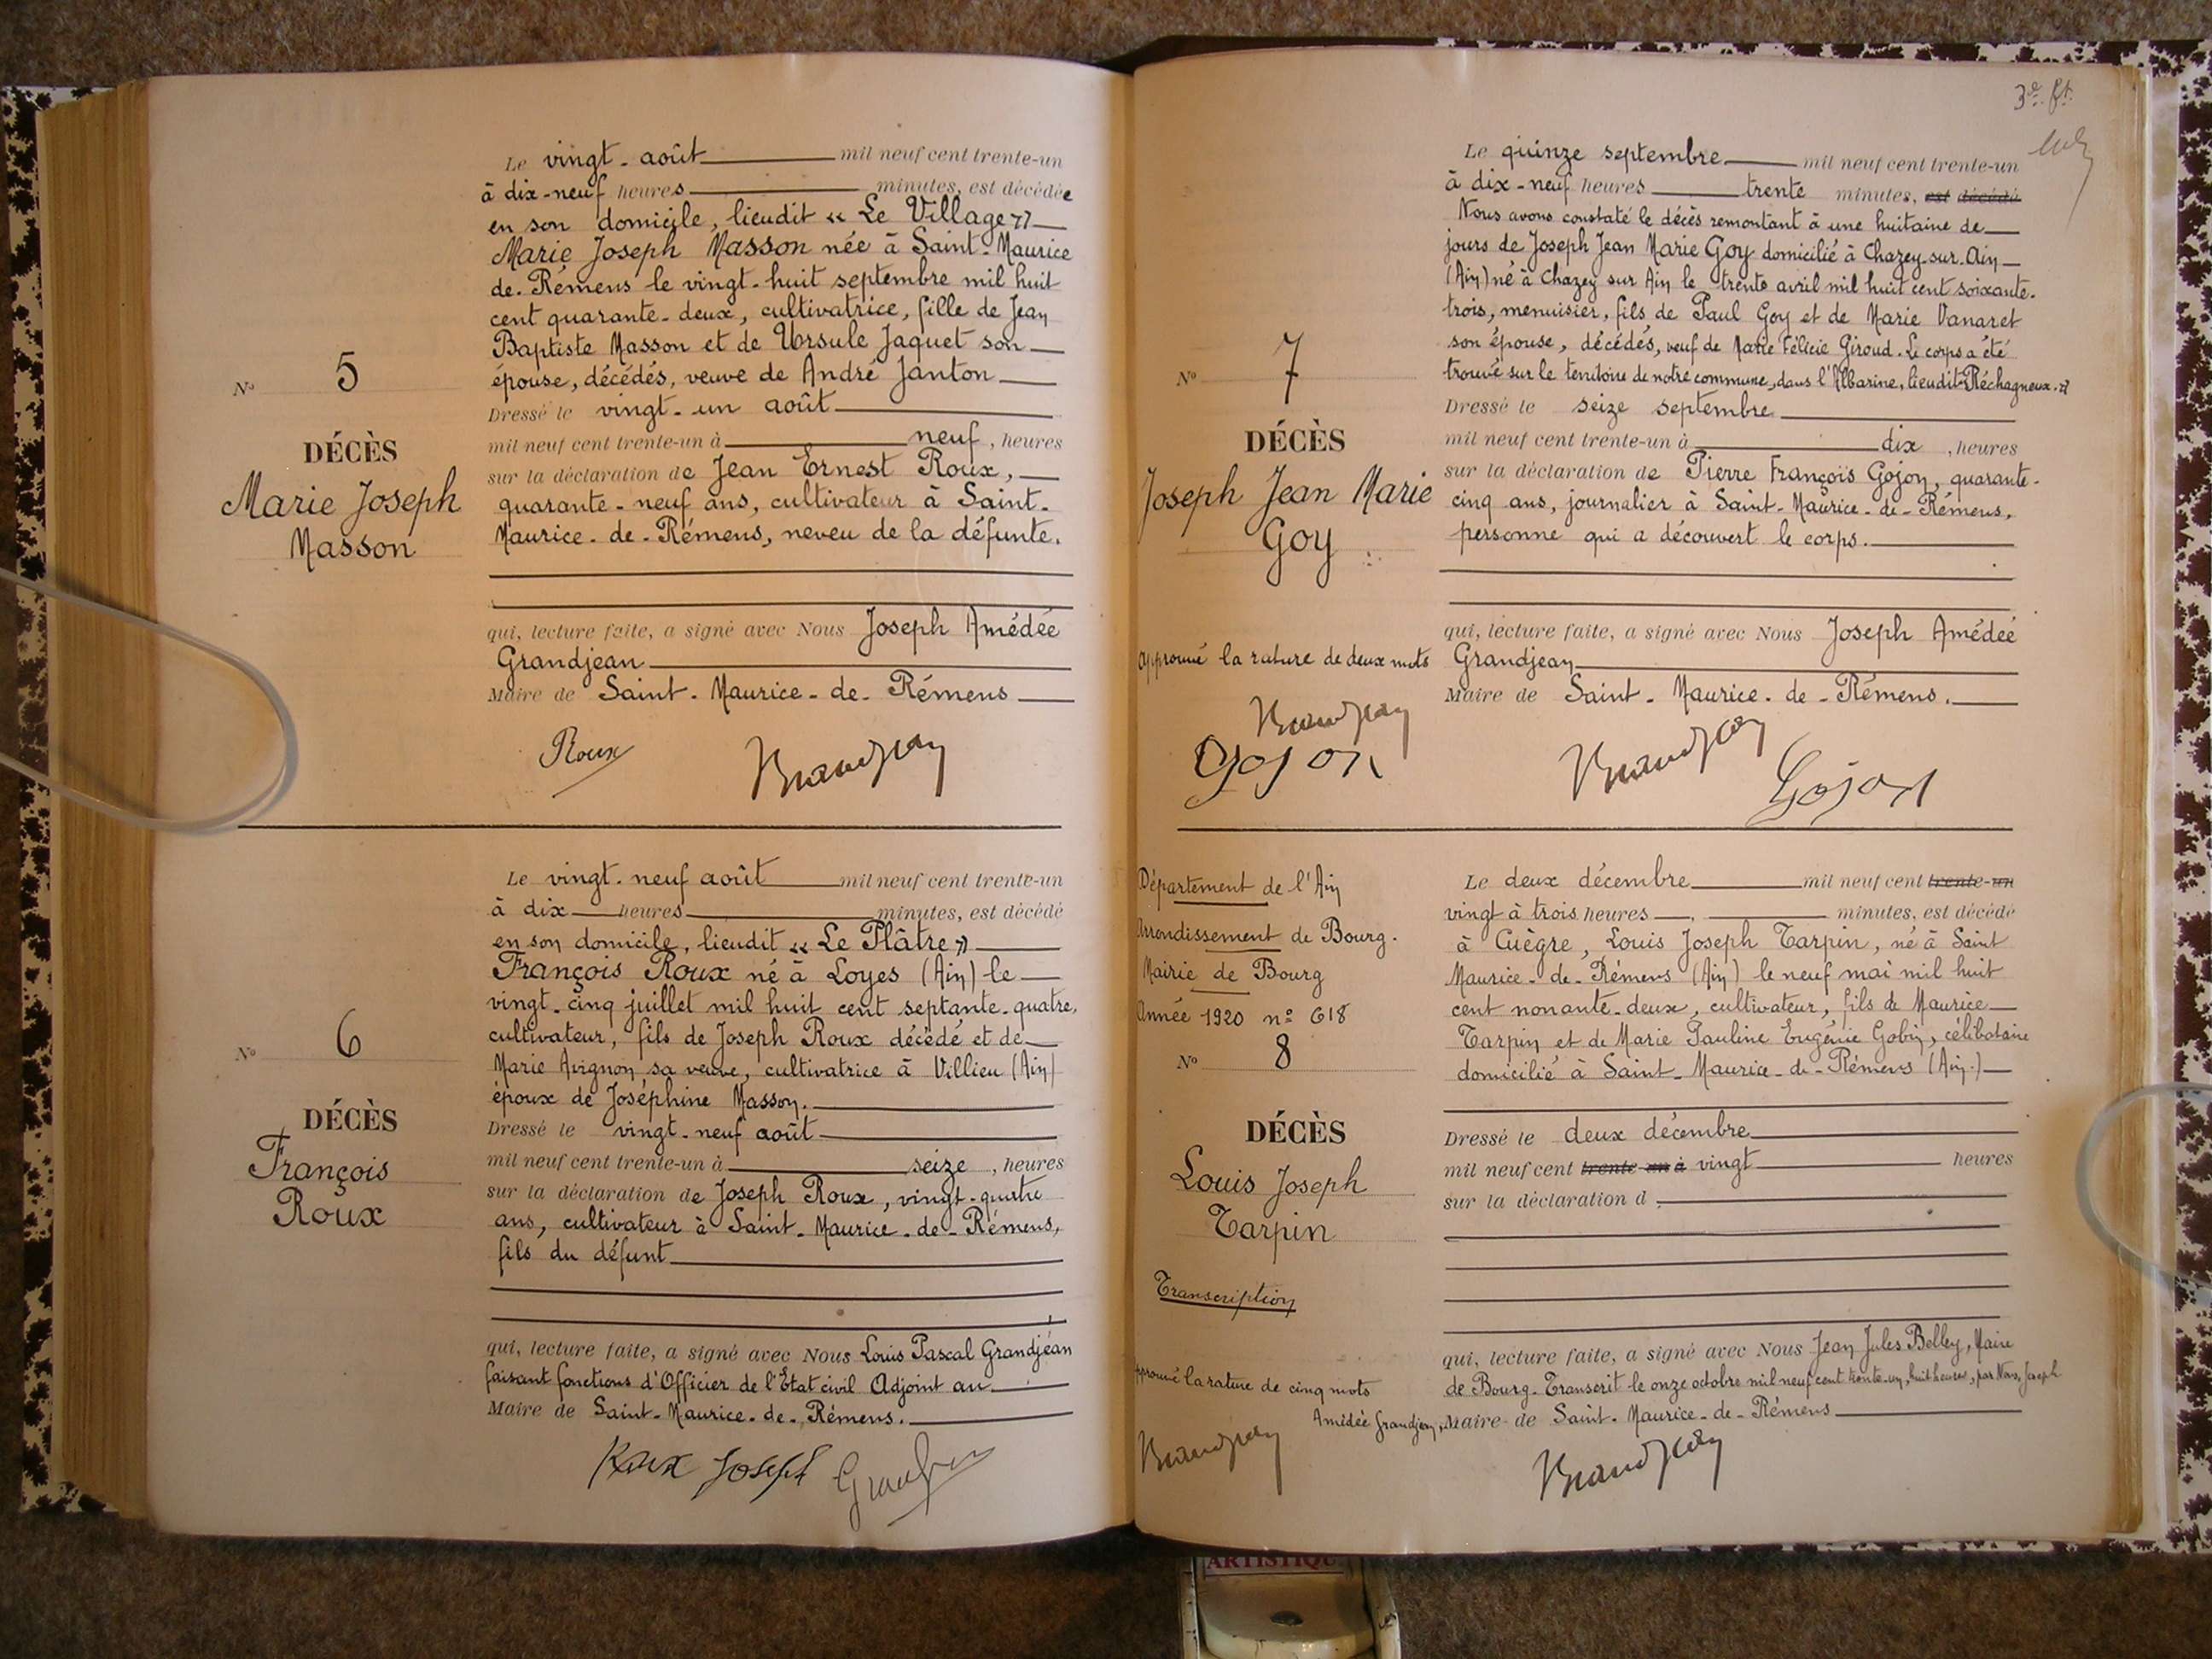 Le vingt-août mil neuf cent trente-un
à dix-neuf heures minutes, est décédée
en son domicile, lieudit « Le Village »
Marie Joseph Masson née à Saint-Maurice
de-Rémens le vingt-huit septembre mil huit
cent quarante-deux, cultivatrice, fille de Jean
Baptiste Masson et de Ursule Jaquet son
épouse, décédés, veuve de André Janton
Dressé le vingt-un août
mil neuf cent trente-un à neuf, heures
sur la déclaration de Jean Ernest Roux,
quarante-neuf ans, cultivateur à Saint-
Maurice-de-Rémens, neveu de la défunte.
N° 5
DÉCÈS
Marie Joseph
Masson
qui, lecture faite, a signé avec Nous Joseph Amédée
Grandjean
Maire de Saint-Maurice-de-Rémens
Roux Grandjean
Le vingt-neuf août mil neuf cent trente-un
à dix heures minutes, est décédé
en son domicile, lieudit « Le Plâtre »
François Roux né à Loyes (Ain) le
vingt-cinq juillet mil huit cent septante-quatre,
cultivateur, fils de Joseph Roux décédé et de
Marie Avignon sa veuve, cultivatrice à Villieu (Ain)
époux de Joséphine Masson.
Dressé le vingt-neuf août
mil neuf cent trente-un à seize, heures
sur la déclaration de Joseph Roux, vingt-quatre
ans, cultivateur à Saint-Maurice-de-Rémens,
fils du défunt
N° 6
DÉCÈS
François
Roux
qui, lecture faite, a signé avec Nous Louis Pascal Grandjean
faisant fonctions d'Officier de l'Etat civil Adjoint au
Maire de Saint-Maurice-de-Rémens.
Roux Joseph Grandjean
3e ft.
Le quinze septembre mil neuf cent trente-un
à dix-neuf heures trente minutes, est décédé
Nous avons constaté le décès remontant à une huitaine de
jours de Joseph Jean Marie Goy domicilié à Chazey-sur-Ain
(Ain) né à Chazey sur Ain le trente avril mil huit cent soixante-
trois, menuisier, fils de Paul Goy et de Marie Vanaret
son épouse, décédés, veuf de Marie Félicie Giroud. Le corps a été
trouvé sur le territoire de notre commune, dans l'Albarine, lieudit "Réchagneux."
Dressé le seize septembre
mil neuf cent trente-un à dix, heures
sur la déclaration de Pierre François Gojon, quarante-
cinq ans, journalier à Saint-Maurice-de-Rémens,
personne qui a découvert le corps.
N° 7
DÉCÈS
Joseph Jean Marie
Goy
approuvé la rature de deux mots
Grandjean
Gojon
qui, lecture faite, a signé avec Nous Joseph Amédée
Grandjean
Maire de Saint-Maurice-de-Rémens.
Grandjean Gojon
Département de l'Ain
Arrondissement de Bourg.
Mairie de Bourg
Année 1920 n° 618
N° 8
DÉCÈS
Louis Joseph
Tarpin
Transcription
Le deux décembre mil neuf cent trente-un
vingt à trois heures minutes, est décédé
à Cuègre, Louis Joseph Tarpin, né à Saint
Maurice-de-Rémens (Ain) le neuf mai mil huit
cent nonante-deux, cultivateur, fils de Maurice
Tarpin et de Marie Pauline Eugénie Gobin, célibataire
domicilié à Saint-Maurice-de-Rémens (Ain.)
Dressé le deux décembre
mil neuf cent trente-un à vingt heures
sur la déclaration d
qui, lecture faite, a signé avec Nous Jean Jules Belley, Maire
de Bourg. Transcrit le onze octobre mil neuf cent trente-un, huit heures, par Nous, Joseph
Amédée Grandjean, Maire de Saint-Maurice-de-Rémens
approuvé la rature de cinq mots
Grandjean
Grandjean
ARTISTIQU